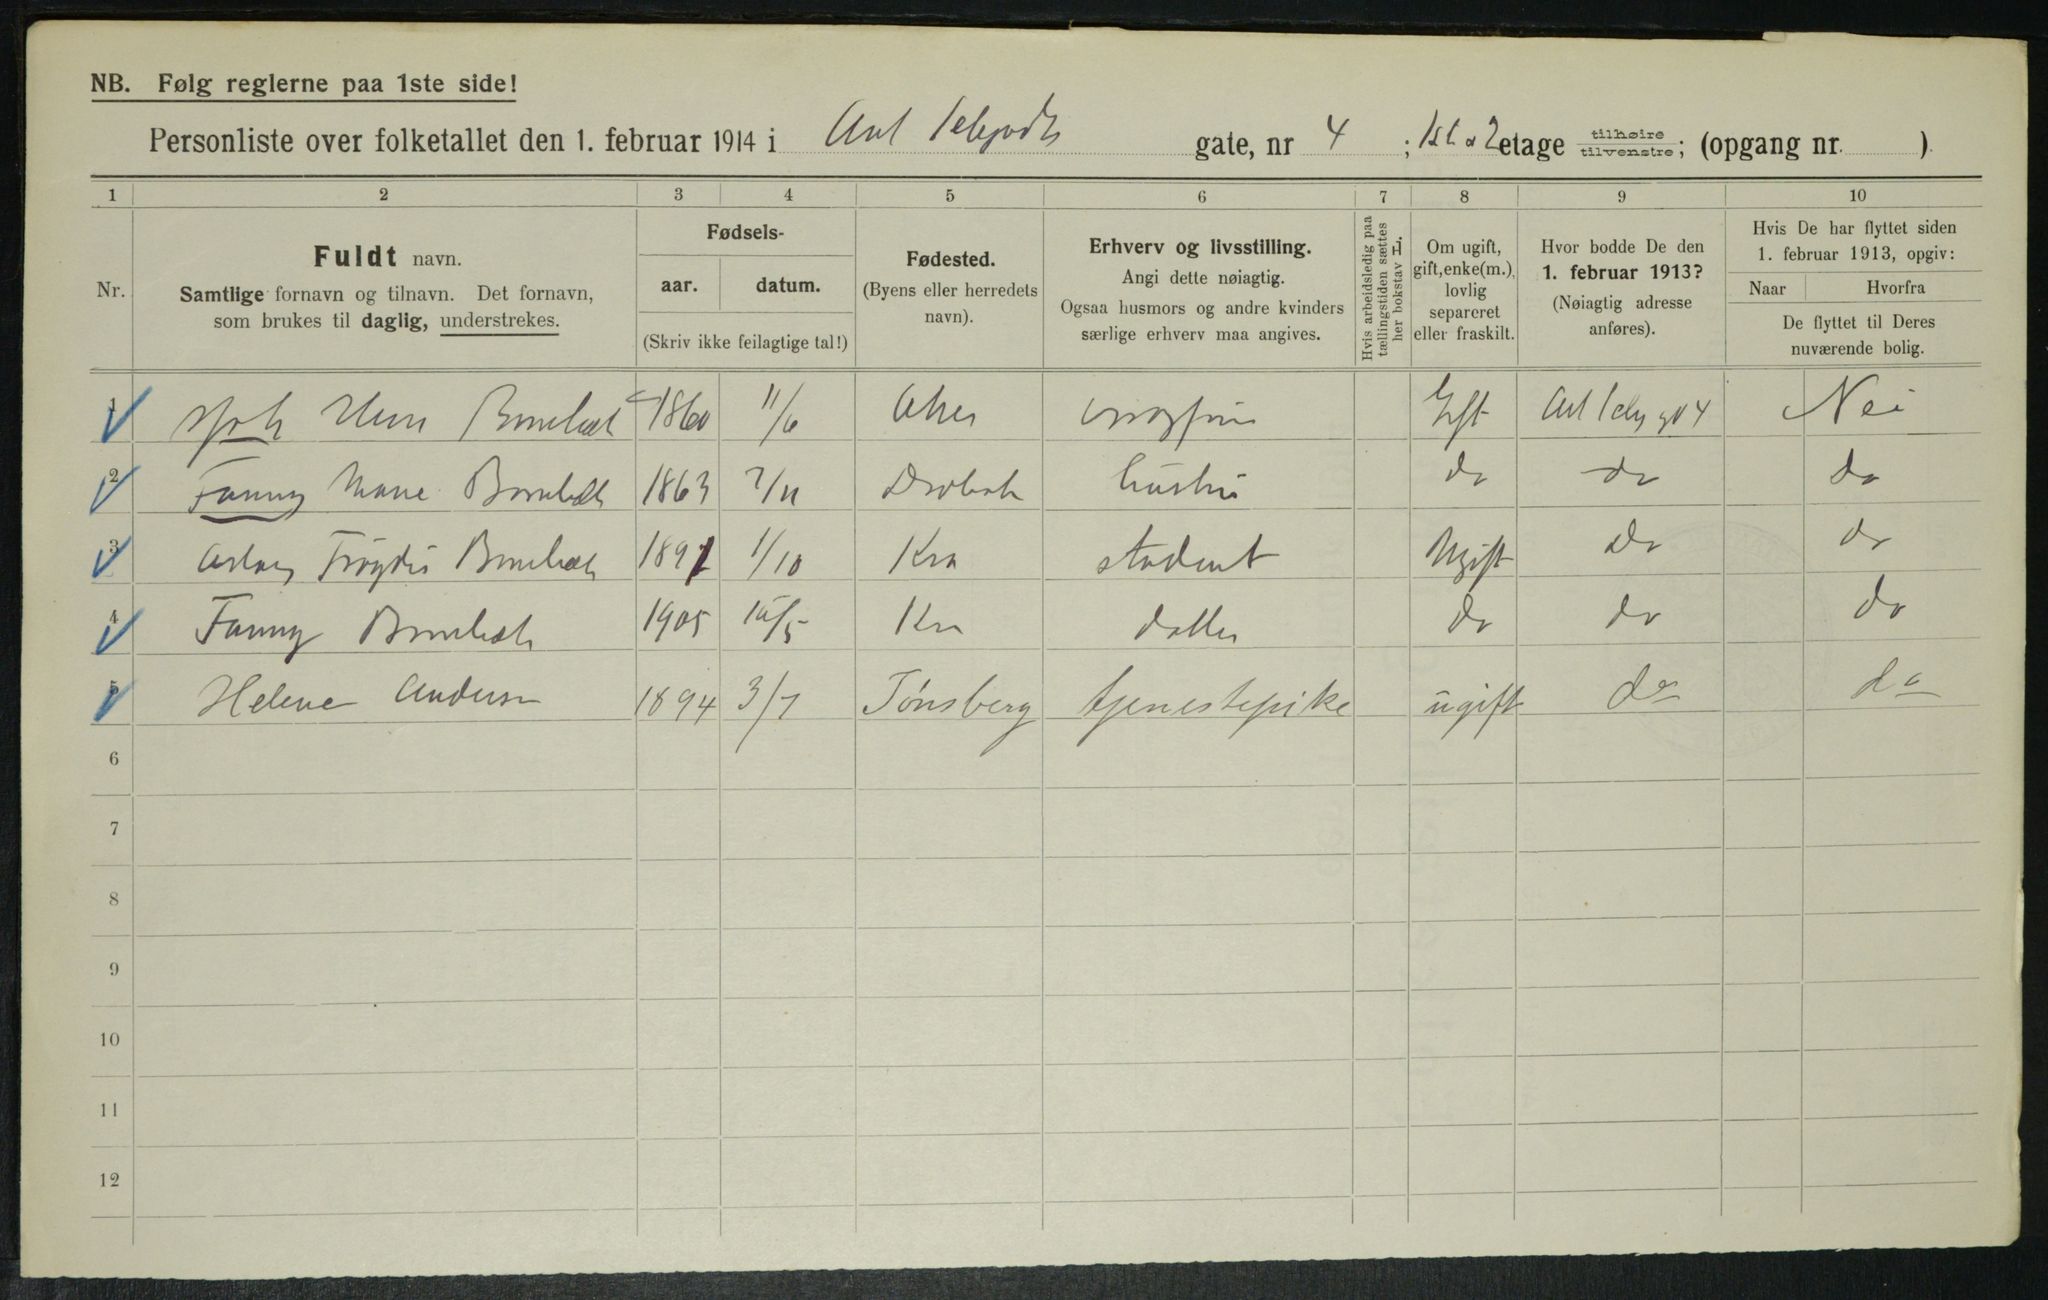 NB. Følg reglerne paa 1ste side!
Personliste over folketallet den 1. februar 1914 i gate, nr 4 ; 1st o 2 etage tilhøire tilvenstre; (opgang nr. )
1 2 3 4 5 6 7 8 9 10
Nr.
Fuldt navn.
Samtlige fornavn og tilnavn. Det fornavn,
som brukes til daglig, understrekes.
Fødsels-
aar. datum.
(Skriv ikke feilagtige tal!)
Fødested.
(Byens eller herredets
navn).
Erhverv og livsstilling.
Angi dette nøiagtig.
Ogsaa husmors og andre kvinders
særlige erhverv maa angives.
Hvis arbeidsledig paa
tællingstiden sættes
her bokstav L.
Om ugift,
gift, enke(m.),
lovlig
separeret
eller fraskilt.
Hvor bodde De den
1. februar 1913?
(Nøiagtig adresse
anføres).
Hvis De har flyttet siden
1. februar 1913, opgiv:
Naar Hvorfra
De flyttet til Deres
nuværende bolig.
1 1860 11/6 Aker Gift 4 Nei
2 Fanny Marie 1863 2/11 Drøbak hustru do do do
3 1891 1/10 Kra student Ugift do do
4 Fanny 1905 15/5 Kra datter do do do
5 Helene Andersen 1894 3/7 Tønsberg tjenestepike ugift do do
6
7
8
9
10
11
12